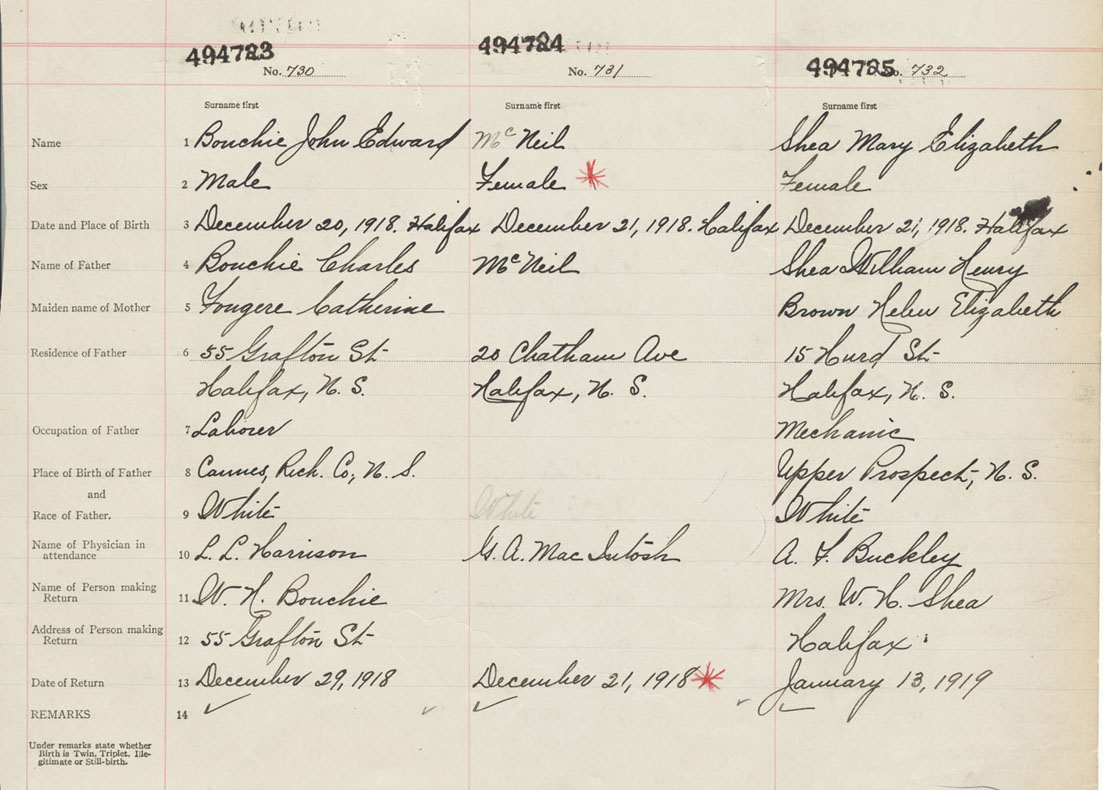 494783 494784 494785
No. 730 No. 731 No. 732
Surname first Surname first Surname first
Name 1 Bouchie John Edward McNeil Shea Mary Elizabeth
Sex 2 Male Female * Female
Date and Place of Birth 3 December 20, 1918. Halifax December 21, 1918. Halifax December 21, 1918. Halifax
Name of Father 4 Bouchie Charles McNeil Shea William Henry
Maiden name of Mother 5 Fougere Catherine Brown Helen Elizabeth
Residence of Father 6 55 Grafton St 20 Chatham Ave 15 Hurd St
Halifax, N. S. Halifax, N. S. Halifax, N. S.
Occupation of Father 7 Laborer Mechanic
Place of Birth of Father 8 Cannes, Rich. Co., N. S. Upper Prospect, N. S.
and
Race of Father. 9 White White White
Name of Physician in attendance 10 L. L. Harrison G. A. MacIntosh A. F. Buckley
Name of Person making Return 11 W. H. Bouchie Mrs. W. H. Shea
Address of Person making Return 12 55 Grafton St Halifax
Date of Return 13 December 29, 1918 December 21, 1918 * January 13, 1919
REMARKS 14
Under remarks state whether
Birth is Twin, Triplet, Ille-
gitimate or Still-birth.